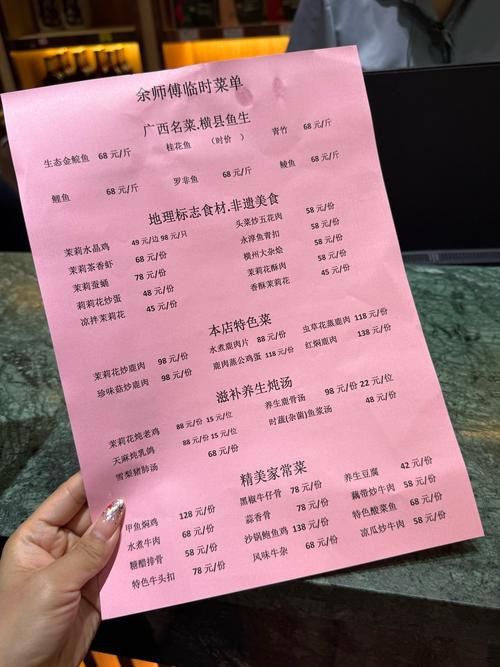 余师傅临时菜单
广西名菜.横县鱼生
生态金鲩鱼 68 元/斤 桂花鱼 （时价 ） 青竹 68 元/斤
鲤鱼 68 元/斤 罗非鱼 68 元/斤 鲮鱼 68 元/斤
地理标志食材.非遗美食
茉莉水晶鸡 49 元/边 98 元/只 头菜炒五花肉 58 元/份
茉莉茶香虾 68 元/份 永淳鱼青扣 58 元/份
茉莉蚕蛹 78 元/份 横州大杂烩 58 元/份
莉莉花炒蛋 48 元/份 茉莉花酥肉 58 元/份
凉拌茉莉花 45 元/份 香酥茉莉花 45 元/份
本店特色菜
茉莉花炒鹿肉 98 元/份 水煮鹿肉片 88 元/份 虫草花蒸鹿肉 118 元/份
珍味菇炒鹿肉 98 元/份 鹿肉蒸公鸡蛋 118 元/份 红焖鹿肉 138 元/份
滋补养生炖汤
茉莉花炖老鸡 88 元/份 15 元/位 养生鹿骨汤 98 元/份 22 元/位
天麻炖乳鸽 88 元/份 15 元/位 时蔬(杂菌)鱼浆汤 48 元/份
雪梨猪肺汤 68 元/份
精美家常菜
甲鱼焖鸡 128 元/份 黑椒牛仔骨 78 元/份 养生豆腐 42 元/份
水煮牛肉 68 元/份 蒜香骨 78 元/份 藕带炒牛肉 58 元/份
糖醋排骨 58 元/份 沙锅鲍鱼鸡 138 元/份 特色酸菜鱼 68 元/份
特色牛头扣 78 元/份 风味牛杂 68 元/份 凉瓜炒牛肉 58 元/份